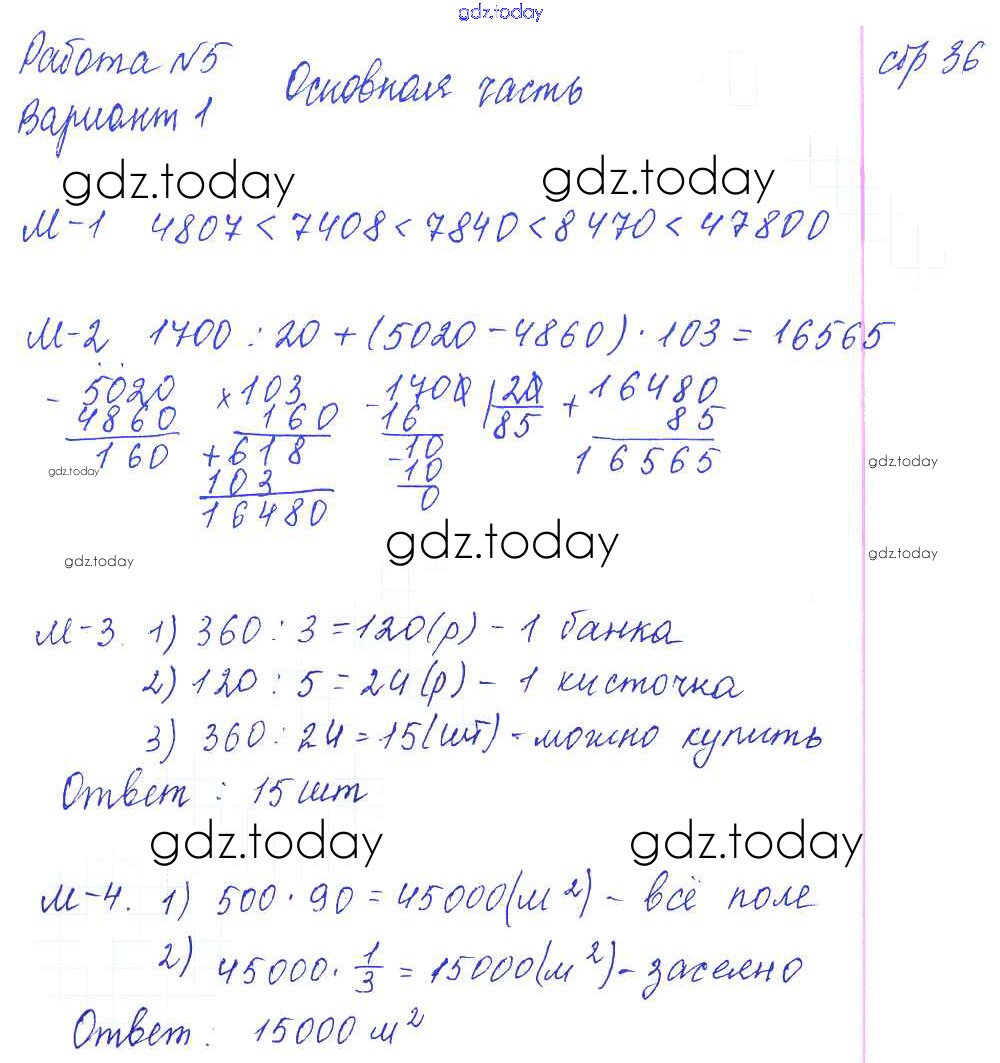 gdz.today
Работа №5
Основная часть
стр 36
Вариант 1
gdz.today gdz.today
М-1 4807 < 7408 < 7840 < 8470 < 47800
М-2 1700 : 20 + (5020 - 4860) · 103 = 16565
- 5020 × 103 - 1700 | 20 + 16480
4860 160 16 85 85
160 + 618 - 10 16565
gdz.today 103 10 gdz.today
16480 0
gdz.today gdz.today gdz.today
М-3. 1) 360 : 3 = 120 (р) - 1 банка
2) 120 : 5 = 24 (р) - 1 кисточка
3) 360 : 24 = 15 (шт) - можно купить
Ответ : 15 шт
gdz.today gdz.today
М-4. 1) 500 · 90 = 45000 (м²) - всё поле
2) 45000 · 1/3 = 15000 (м²) - засеяно
Ответ : 15000 м²